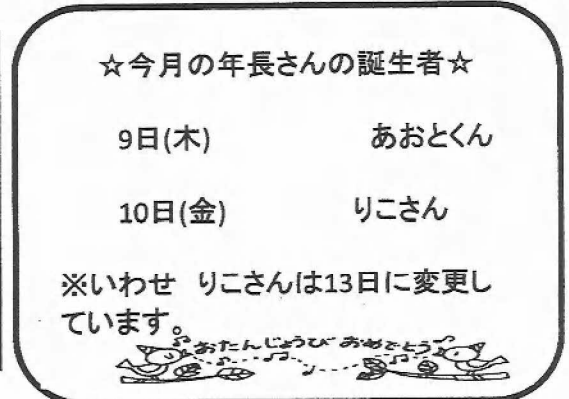 ☆今月の年長さんの誕生者☆
9日(木) あおとくん
10日(金) りこさん
※いわせ りこさんは13日に変更し
ています。
おたんじょうび おめでとう